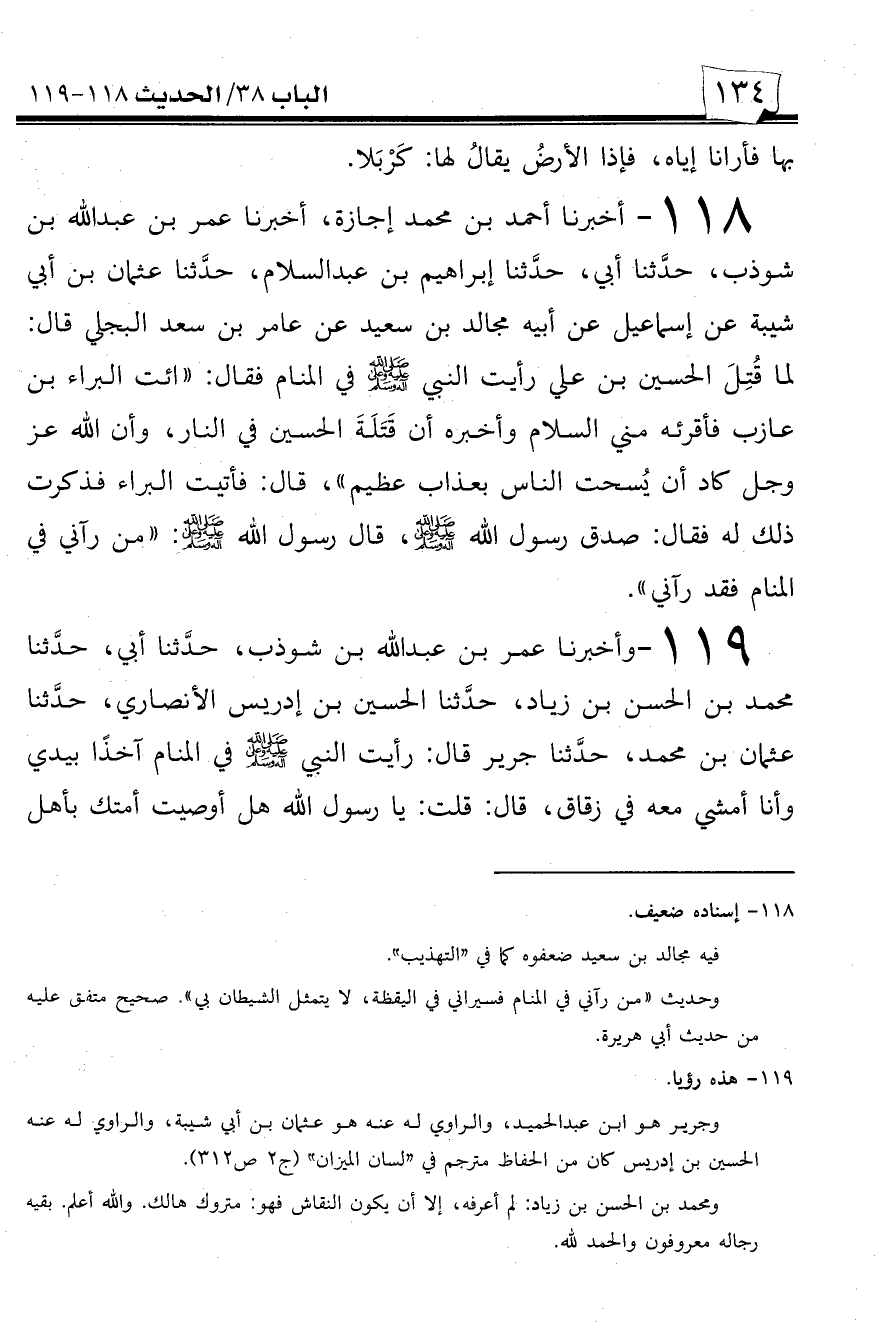 ١٣٤ الباب ٣٨/ الحديث ١١٨-١١٩
بها فأرانا إياه، فإذا الأرضُ يقالُ لها: كَرْبَلا.
١١٨ - أخبرنا أحمد بن محمد إجازة، أخبرنا عمر بن عبدالله بن
شوذب، حدَّثنا أبي، حدَّثنا إبراهيم بن عبدالسلام، حدَّثنا عثمان بن أبي
شيبة عن إسماعيل عن أبيه مجالد بن سعيد عن عامر بن سعد البجلي قال:
لما قُتِلَ الحسين بن علي رأيت النبي ﷺ في المنام فقال: «ائت البراء بن
عازب فأقرئه مني السلام وأخبره أن قَتَلَةَ الحسين في النار، وأن الله عز
وجل كاد أن يُسحت الناس بعذاب عظيم»، قال: فأتيت البراء فذكرت
ذلك له فقال: صدق رسول الله ﷺ، قال رسول الله ﷺ: «من رآني في
المنام فقد رآني».
١١٩ -وأخبرنا عمر بن عبدالله بن شوذب، حدَّثنا أبي، حدَّثنا
محمد بن الحسن بن زياد، حدَّثنا الحسين بن إدريس الأنصاري، حدَّثنا
عثمان بن محمد، حدَّثنا جرير قال: رأيت النبي ﷺ في المنام آخذًا بيدي
وأنا أمشي معه في زقاق، قال: قلت: يا رسول الله هل أوصيت أمتك بأهل
١١٨- إسناده ضعيف.
فيه مجالد بن سعيد ضعفوه كما في «التهذيب».
وحديث «من رآني في المنام فسيراني في اليقظة، لا يتمثل الشيطان بي». صحيح متفق عليه
من حديث أبي هريرة.
١١٩- هذه رؤيا.
وجرير هو ابن عبدالحميد، والراوي له عنه هو عثمان بن أبي شيبة، والراوي له عنه
الحسين بن إدريس كان من الحفاظ مترجم في «لسان الميزان» (ج٢ ص٣١٢).
ومحمد بن الحسن بن زياد: لم أعرفه، إلا أن يكون النقاش فهو: متروك هالك. والله أعلم. بقيه
رجاله معروفون والحمد لله.